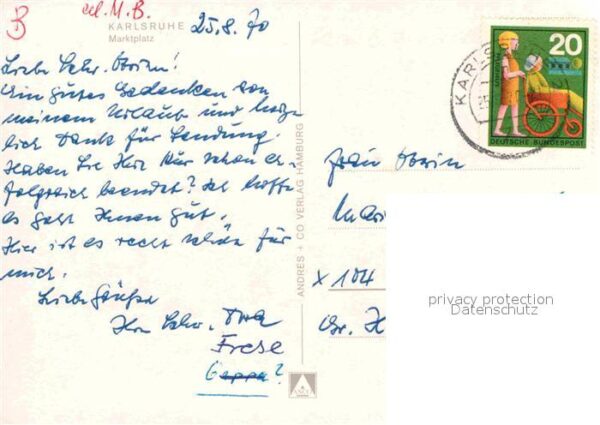 B
KARLSRUHE
Marktplatz
25.8.70
Liebe Schw. Oberin!
Ein gutes Gedenken von
meinem Urlaub und herz-
lich Dank für Sendung.
Haben Sie Ihre Kur schon er-
folgreich beendet? Ich hoffe
es geht Ihnen gut.
Hier ist es recht schön für
mich.
Liebe Grüße
Ihre Schw.
Frese
?
ANDRES + CO VERLAG HAMBURG
KARLS
20
DEUTSCHE BUNDESPOST
Frau Oberin
X 104
privacy protection
Datenschutz